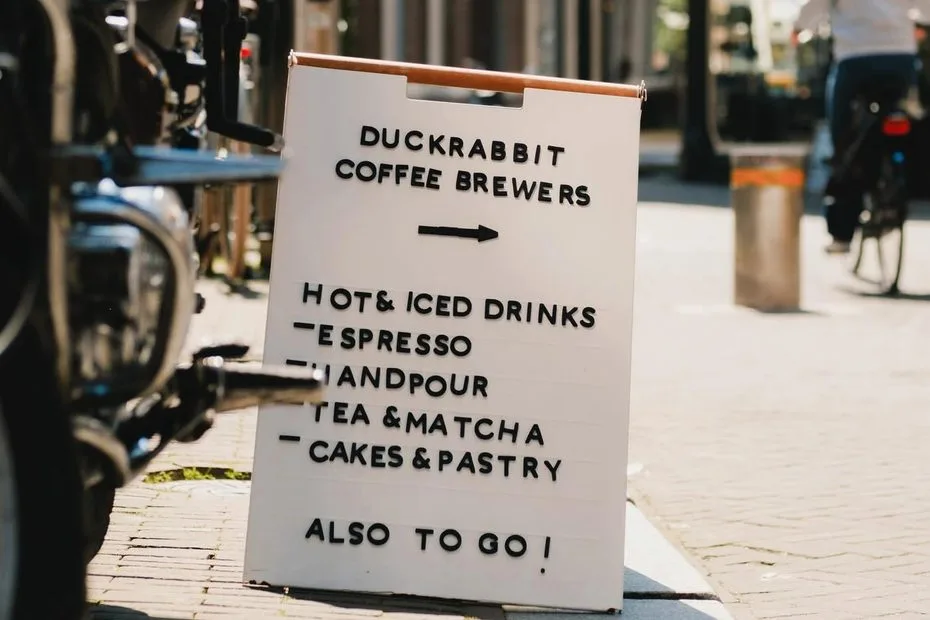 DUCKRABBIT
COFFEE BREWERS
→
HOT & ICED DRINKS
– ESPRESSO
– HANDPOUR
– TEA & MATCHA
– CAKES & PASTRY
ALSO TO GO!